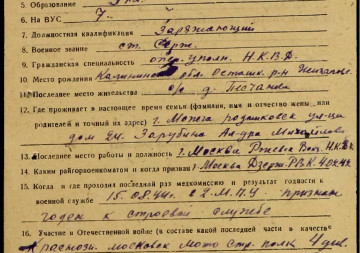 5. Образование
6. На ВУС 7.
7. Должностная квалификация Заряжающий
8. Военное звание ст. Серж.
9. Гражданская специальность опер. уполн. Н.К.В.Д.
10. Место рождения Калининская обл. Осташк. р-н
11. Последнее место жительства с/с д.
12. Где проживает в настоящее время семья (фамилия, имя и отчество жены или
родителей и точный их адрес) г. Молога ул-ца
дом 24. Зарубина Ал-дра Михайловн
13. Последнее место работы и должность г. Москва
14. Каким райгорвоенкоматом и когда призван г. Москва Дзерж. Р.В.К.
15. Когда и где проходил последний раз медкомиссию и результат годности к
военной службе 15.08.44г. признан
годен к строевой службе
16. Участие в Отечественной войне (в составе какой последней части в качестве
московск мото стр. полк 4 див.